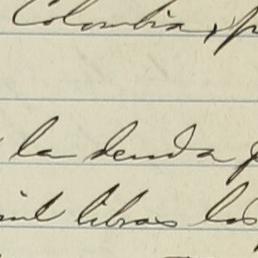 Colombia, p
la deuda
mil libras los